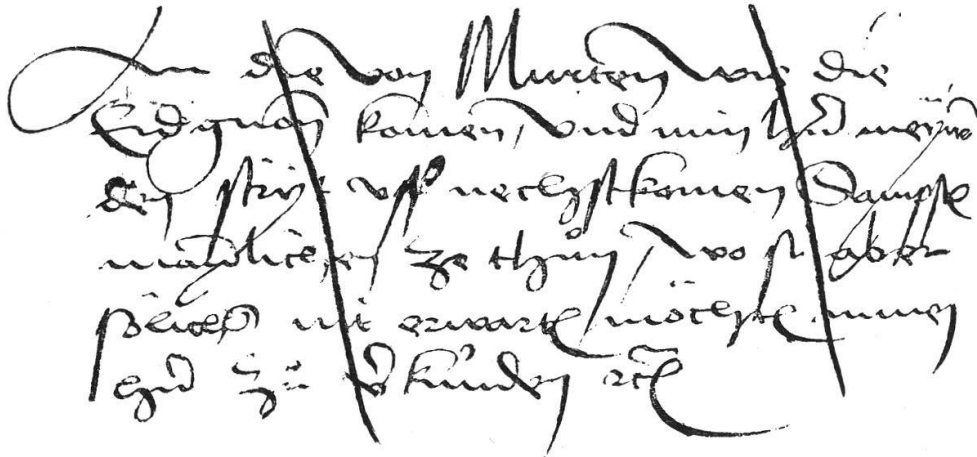 An die von Murten wie die
Eidgnoſſ komen, und min hrn meyne
den ſtryt uff nechſtkomen Sampſt
manlichen ze thun, wo ſi aber
ſölichs nit erwarten möchten, minen
hrn zu verkünden etc